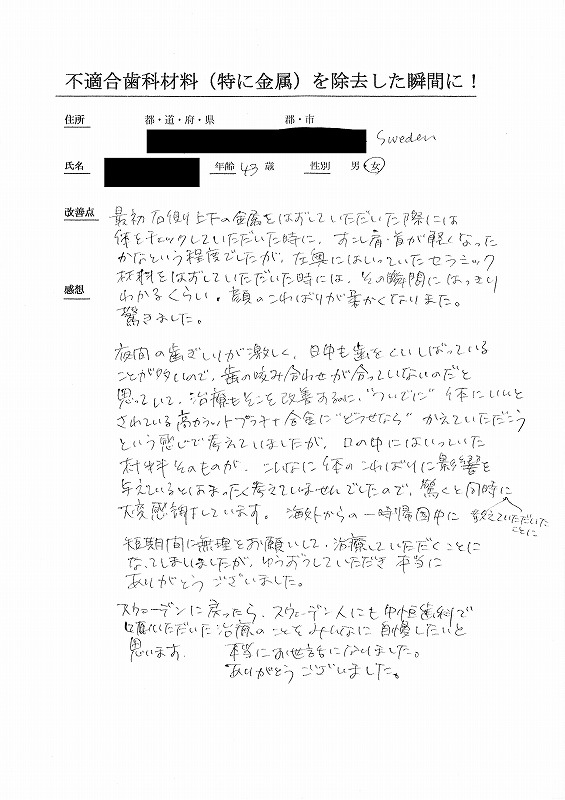 不適合歯科材料（特に金属）を除去した瞬間に！
住所 都・道・府・県 郡・市
Sweden
氏名 年齢 43 歳 性別 男・女
改善点
感想
最初右側上下の金属をはずしていただいた際には
体をチェックしていただいた時に、すこし肩・首が軽くなった
かなという程度でしたが、左奥にはいっていたセラミック
材料をはずしていただいた時には、その瞬間にはっきり
わかるくらい、顔のこわばりが柔かくなりました。
驚きました。
夜間の歯ぎしりが激しく、日中も歯をくいしばっている
ことが多いので、歯の咬み合わせが合っていないのだと
思っていて、治療もそこを改善するのに、"ついでに" 体にいいと
されている高カラットプラチナ合金に"どうせなら" かえていただこう
という感じで考えていましたが、口の中にはいっていた
材料そのものが、こんなに体のこわばりに影響を
与えているとはまったく考えていませんでしたので、驚くと同時に
教えていただいた
ことに
大変感謝しています。海外からの一時帰国中に
短期間に無理をお願いして、治療していただくことに
なってしまいましたが、ゆうずうしていただき 本当に
ありがとう ございました。
スウェーデンに戻ったら、スウェーデン人にも中垣歯科で
していただいた治療のことをみんなに自慢したいと
思います。 本当にお世話になりました。
ありがとう ございました。